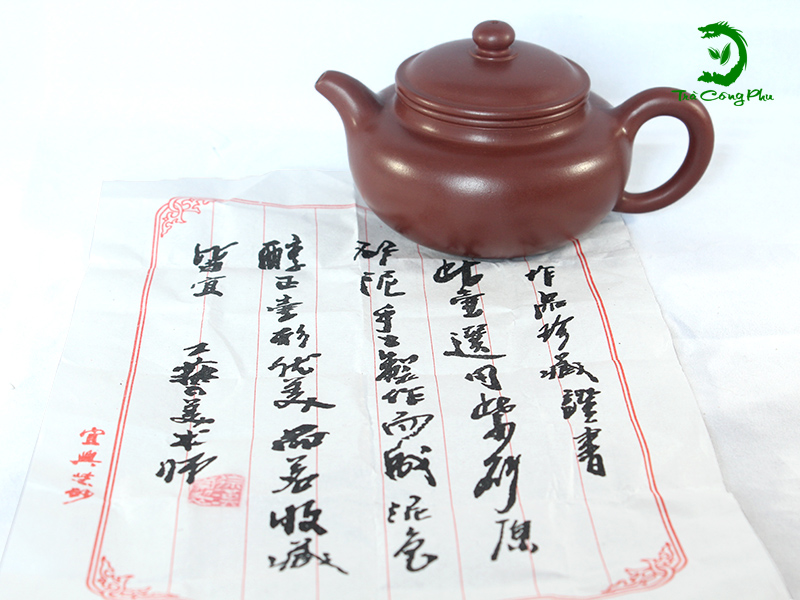 Trà Công Phu
作品珍藏證書
此壺選用紫砂原
矿泥手工製作而成泥色
醇正壺形优美品茗收藏
皆宜 工藝美术师
宜興紫砂